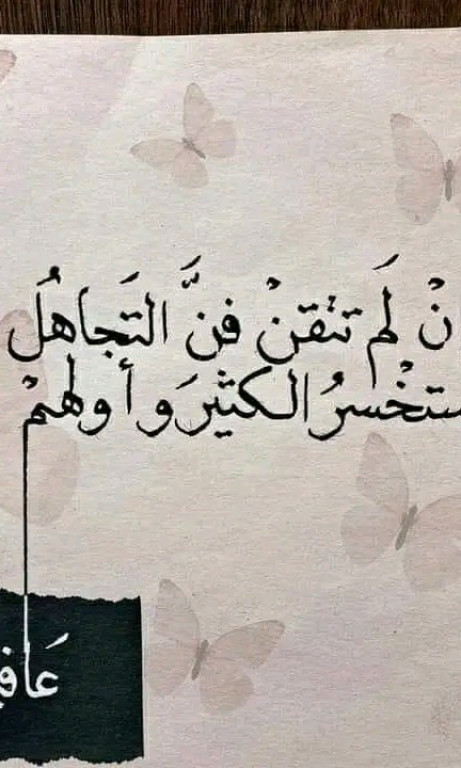 ن لم تتقن فنَّ التَجاهلُ
ستخْسرُ الكثيرَ وأولهمْ
عَافي